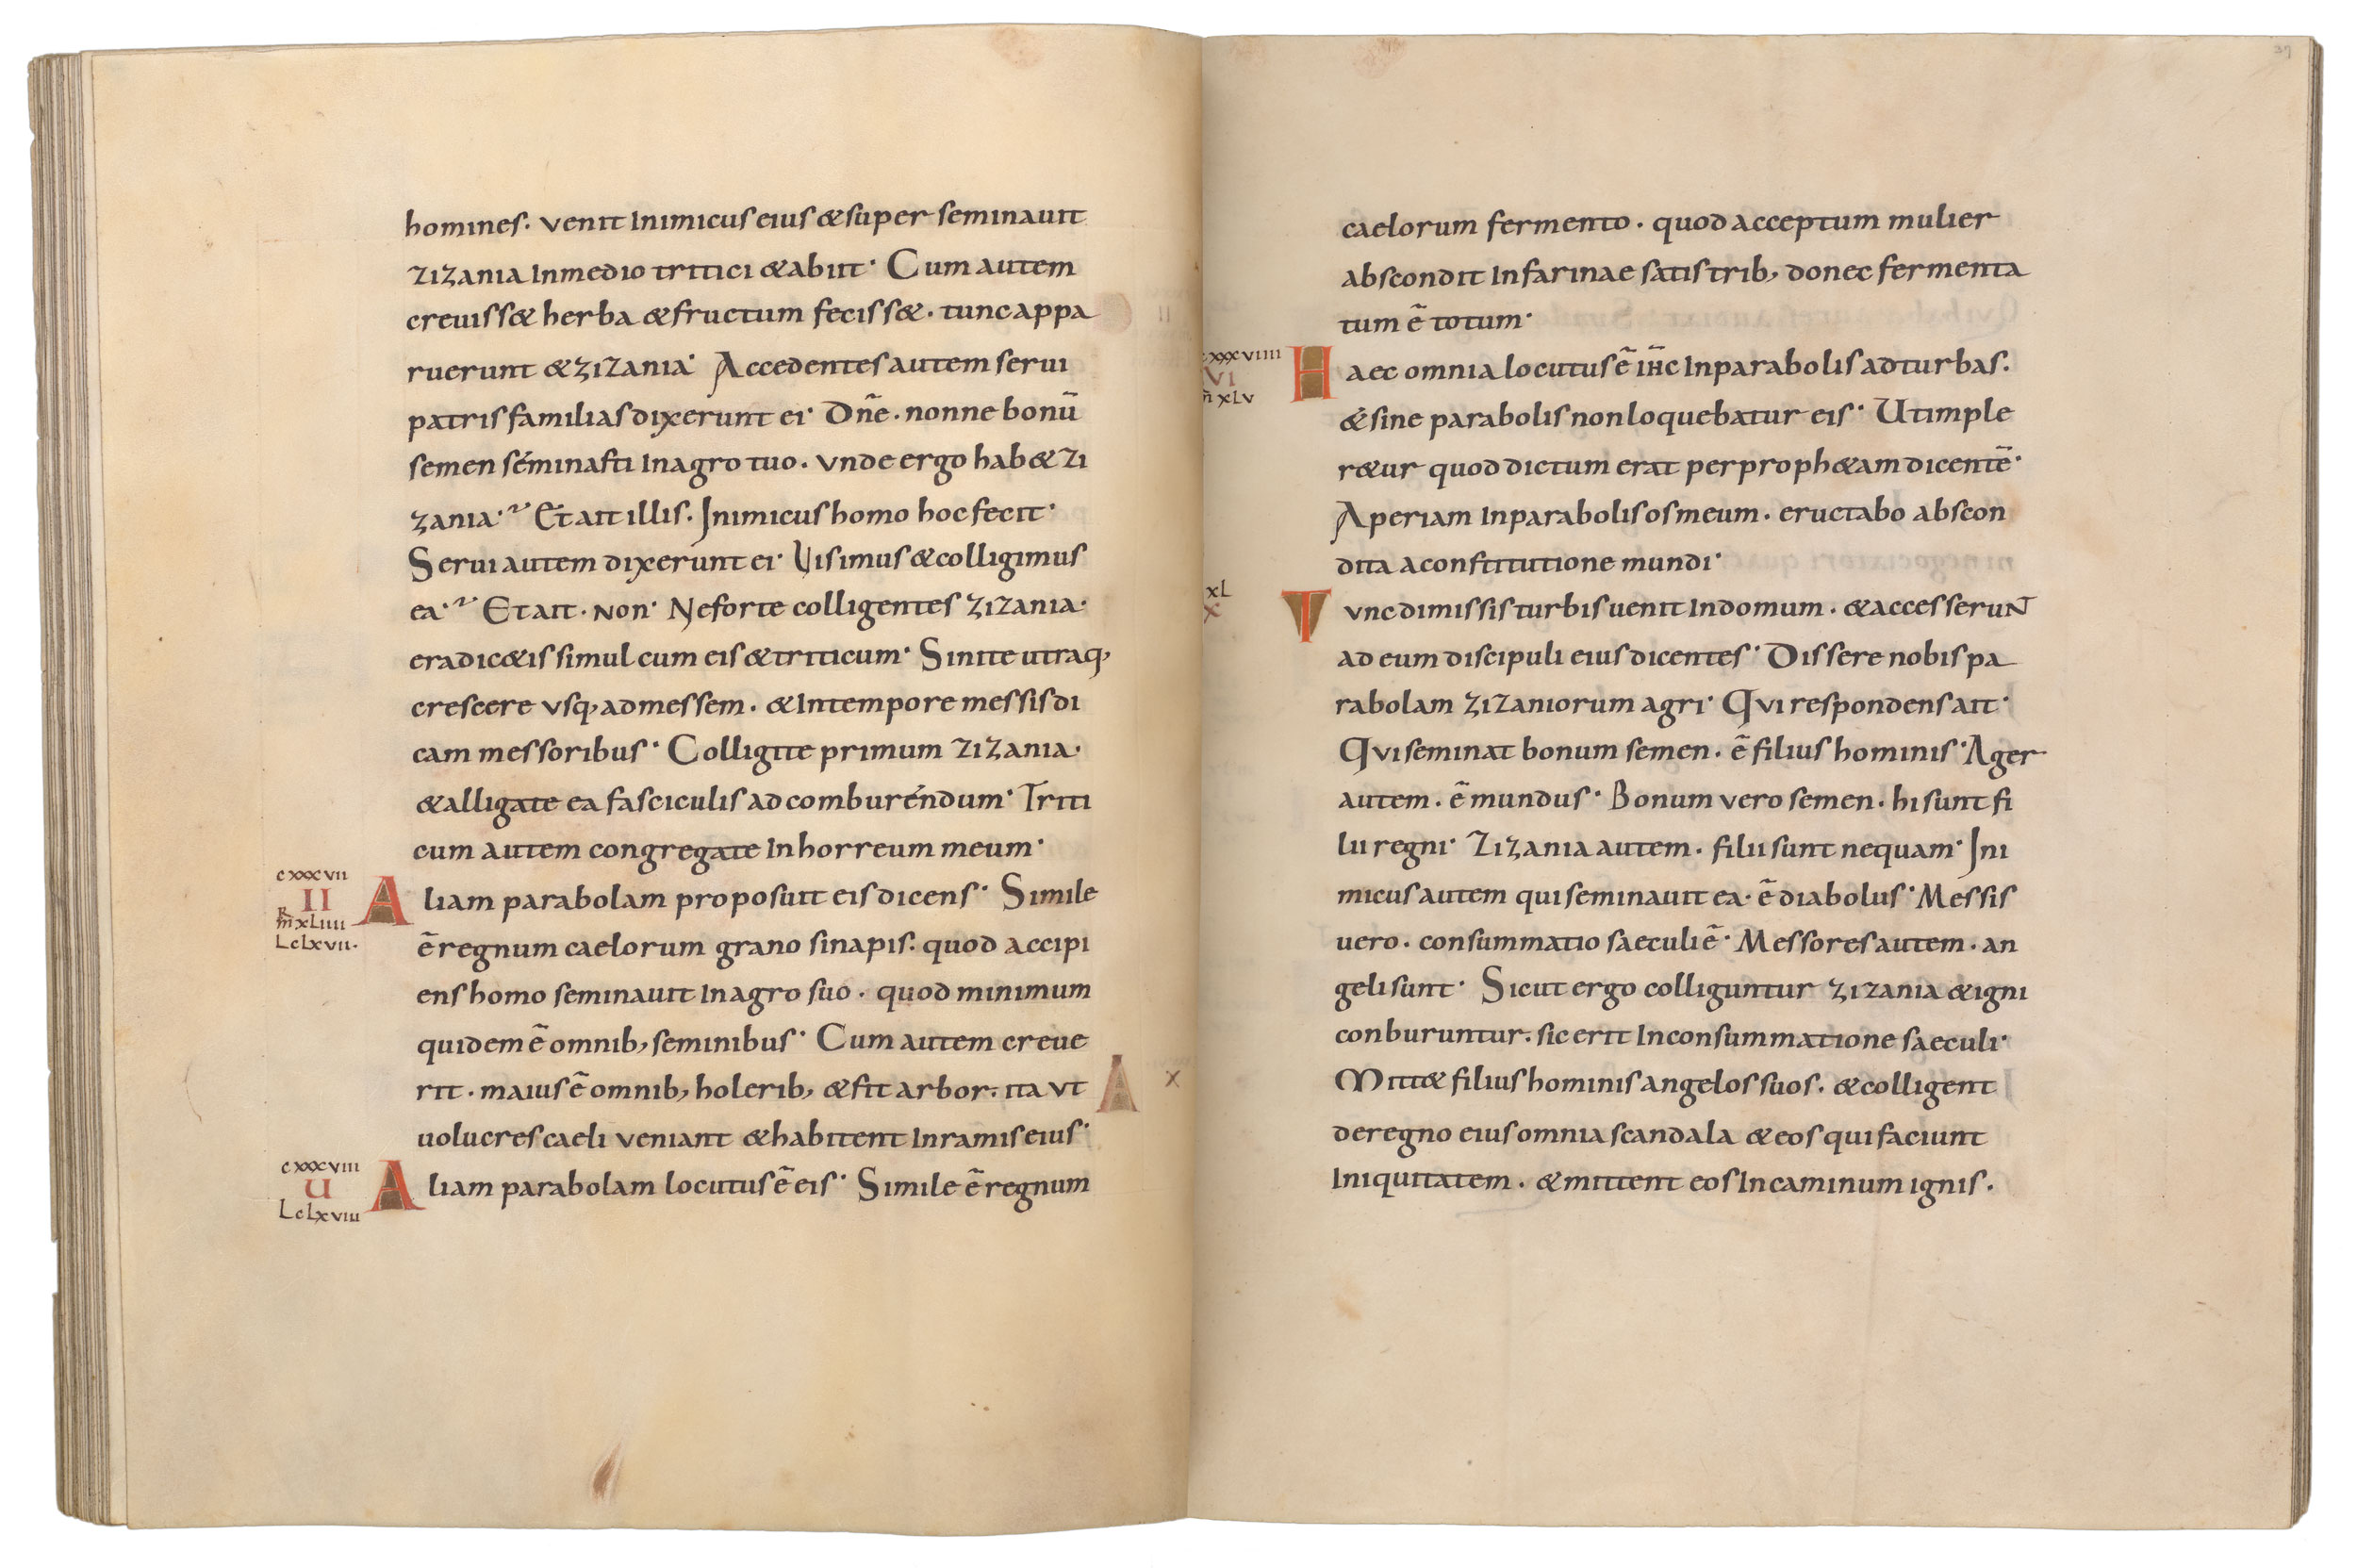 homines. venit Inimicus eius & super seminauit
zizania Inmedio tritici & abiit· Cum autem
creuiss& herba & fructum feciss&. tunc appa
ruerunt & zizania· Accedentes autem serui
patris familias dixerunt ei· Dñe. nonne bonū
semen séminasti Inagro tuo. vnde ergo hab& zi
zania·? Et ait illis. Inimicus homo hoc fecit·
Serui autem dixerunt ei· Uis imus & colligimus
ea·? Et ait. Non· Ne forte colligentes zizania·
eradic&is simul cum eis & triticum· Sinite utraq,
crescere vsq, ad messem. & Intempore messis di
cam messoribus· Colligite primum zizania·
& alligate ea fasciculis ad comburéndum· Triti
cum autem congregate Inhorreum meum·
cxxxvii
II
m̄ xLiiii
L cLxvii.
Aliam parabolam proposuit eis dicens· Simile
ē regnum caelorum grano sinapis. quod accipi
ens homo seminauit Inagro suo. quod minimum
quidem ē omnib, seminibus· Cum autem creue
rit. maius ē omnib, holerib, & fit arbor. ita vt
uolucres caeli veniant & habitent Inramis eius·
cxxxviii
U
L cLxviii
Aliam parabolam locutus ē eis· Simile ē regnum
37
caelorum fermento. quod acceptum mulier
abscondit Infarinae satis trib, donec fermenta
tum ē totum·
cxxxviiii
VI
m̄ xLv
Haec omnia locutus ē ih̄c Inparabolis ad turbas.
& sine parabolis non loquebatur eis· Ut imple
r&ur quod dictum erat per proph&am dicentē·
Aperiam Inparabolis os meum. eructabo abscon
dita a constitutione mundi·
xL
x
Tvnc dimissis turbis uenit Indomum. & accesserunt
ad eum discipuli eius dicentes· Dissere nobis pa
rabolam zizaniorum agri· Qvi respondens ait·
Qvi seminat bonum semen. ē filius hominis· Ager
autem. ē mundus· Bonum vero semen. hi sunt fi
lii regni· Zizania autem. filii sunt nequam· Ini
micus autem qui seminauit ea. ē diabolus· Messis
uero. consummatio saeculi ē· Messores autem. an
geli sunt· Sicut ergo colliguntur zizania & igni
conburuntur. sic erit Inconsummatione saeculi·
Mitt& filius hominis angelos suos. & colligent
de regno eius omnia scandala & eos qui faciunt
Iniquitatem. & mittent eos Incaminum ignis.